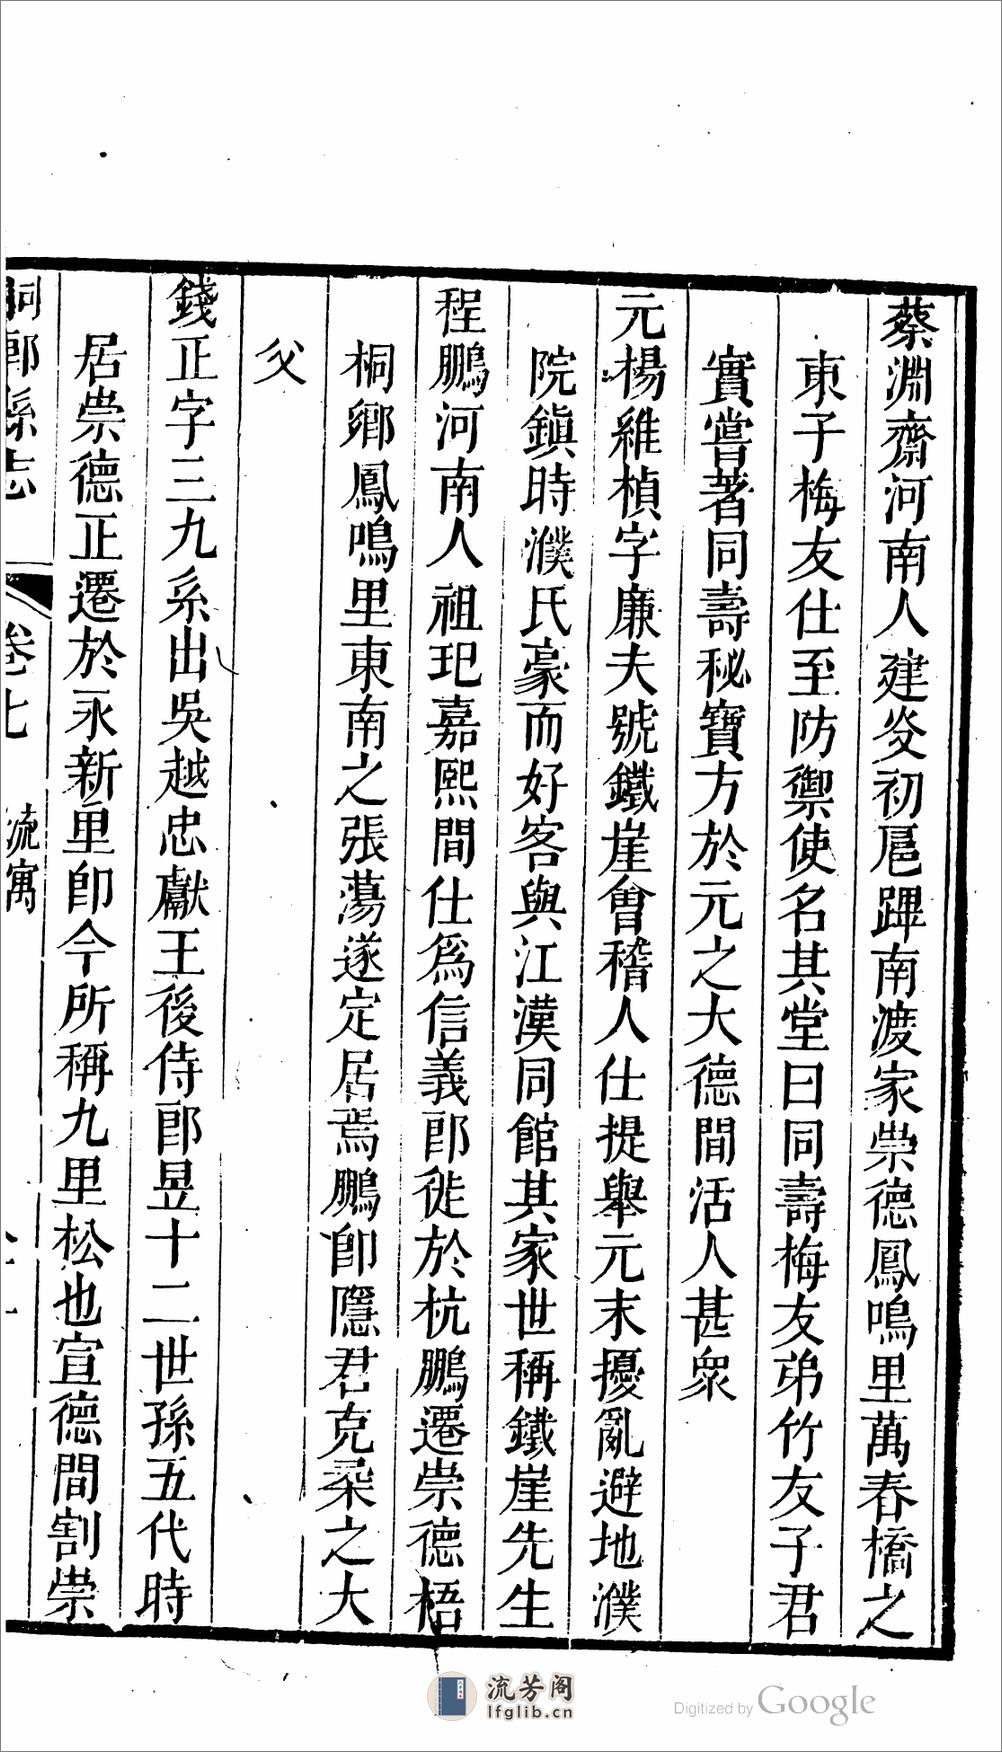 蔡淵齋河南人建炎初扈蹕南渡家崇德鳳鳴里萬春橋之
東子梅友仕至防禦使名其堂曰同壽梅友弟竹友子君
實嘗著同壽秘寶方於元之大德間活人甚眾
元楊維楨字廉夫號鐵崖會稽人仕提舉元末擾亂避地濮
院鎮時濮氏豪而好客與江漢同館其家世稱鐵崖先生
程鵬河南人祖玘嘉熙間仕為信義郎徙於杭鵬遷崇德梧
桐鄉鳳鳴里東南之張蕩遂定居焉鵬即隱君克柔之大
父
錢正字三九系出吳越忠獻王後侍郎昱十二世孫五代時
居崇德正遷於永新里即今所稱九里松也宣德間割崇
桐鄉縣志 卷七 流寓
流芳阁
lfglib.cn
Digitized by Google